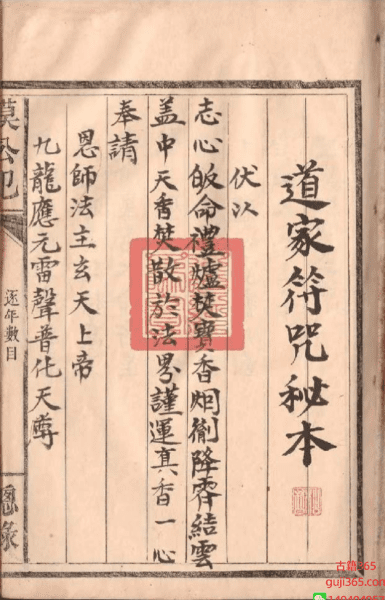 道家符咒秘本
伏以
志心皈命禮爐焚寶香烟衝降霄結雲
盖中天香焚散於法界謹運真香一心
奉請
恩師法主玄天上帝
九龍應元雷聲普化天尊
逐年數目
古籍365
guji365.com